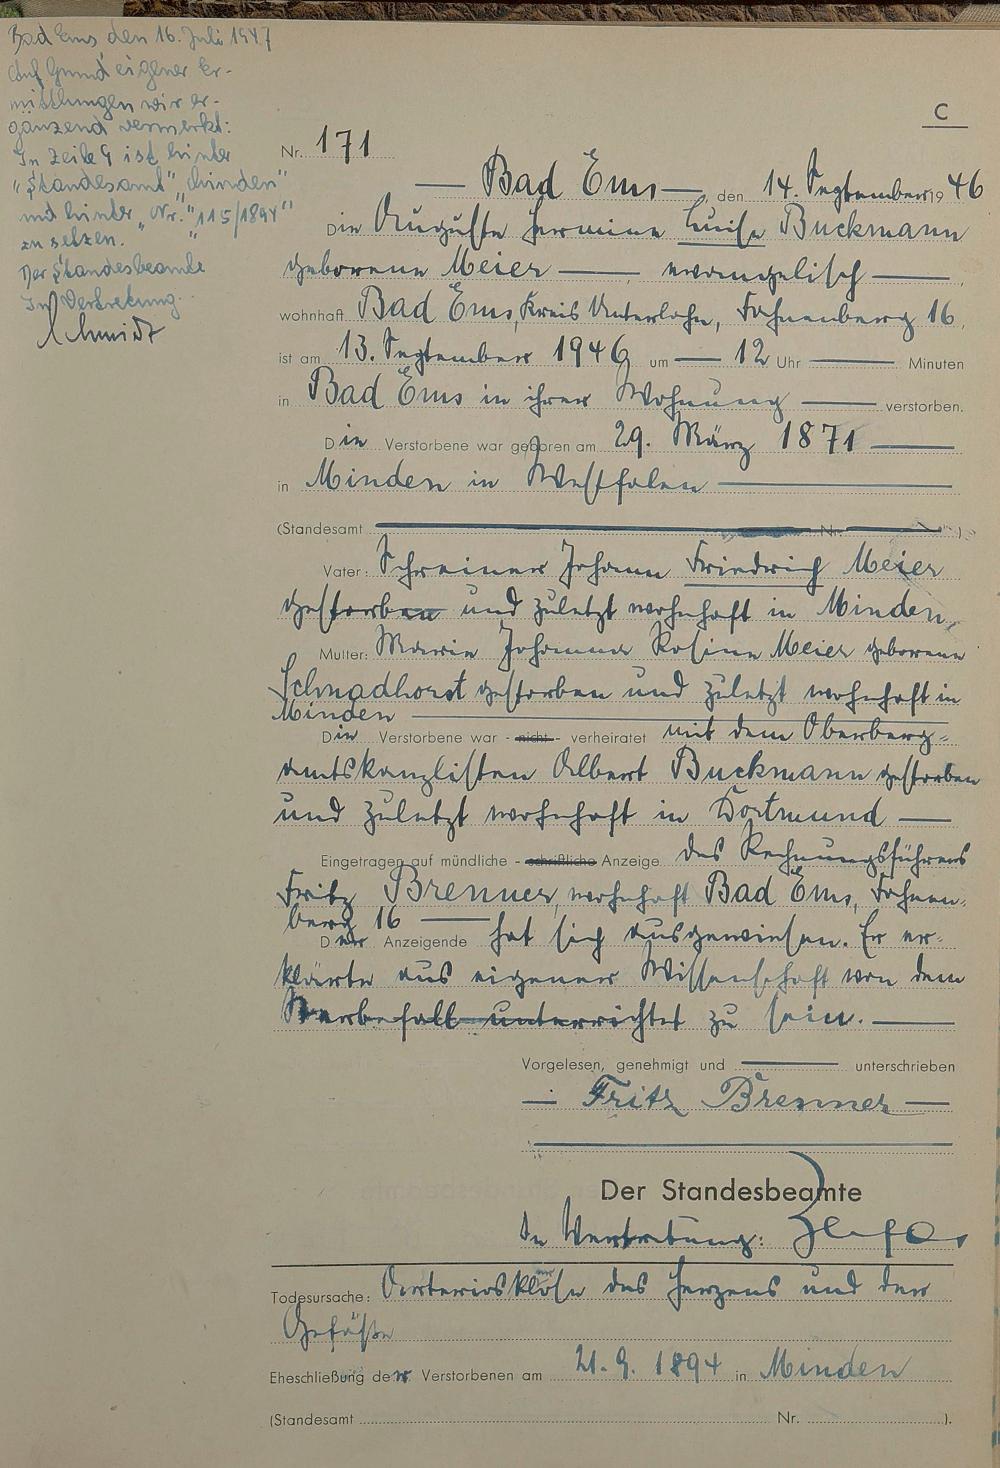 Bad Ems, den 16. Juli 1947
Auf Grund eigener Er-
mittlungen wir er-
gänzend vermerkt:
In Zeile 9 ist hinter
"Standesamt" "Minden"
und hinter "Nr." "115/1894"
zu setzen.
Der Standesbeamte
In Vertretung.
Schmidt
C
Nr. 171
Bad Ems, den 14. September 1946
Die Auguste Hermine Luise Buckmann
geborene Meier evangelisch
wohnhaft Bad Ems, Kreis Unterlahn, Fahnenberg 16,
ist am 13. September 1946 um 12 Uhr Minuten
in Bad Ems in ihrer Wohnung verstorben.
Die Verstorbene war geboren am 29. März 1871
in Minden in Westfalen
(Standesamt Nr. ).
Vater: Schreiner Johann Friedrich Meier
gestorben und zuletzt wohnhaft in Minden,
Mutter: Marie Johanna Rosine Meier geborene
Schnadhorst gestorben und zuletzt wohnhaft in
Minden
Die Verstorbene war - nicht - verheiratet mit dem Oberberg-
amtskanzlisten Albert Buckmann gestorben
und zuletzt wohnhaft in Dortmund
Eingetragen auf mündliche - schriftliche Anzeige des Rechnungsführers
Fritz Brenner, wohnhaft Bad Ems, Fahnen-
berg 16
Der Anzeigende hat sich ausgewiesen. Er er-
klärte aus eigener Wissenschaft von dem
Sterbefall unterrichtet zu sein.
Vorgelesen, genehmigt und unterschrieben
Fritz Brenner
Der Standesbeamte
In Vertretung:
Todesursache: Arteriosklerose des Herzens und der
Gefäße
Eheschließung der Verstorbenen am 21.9.1894 in Minden
(Standesamt Nr. ).